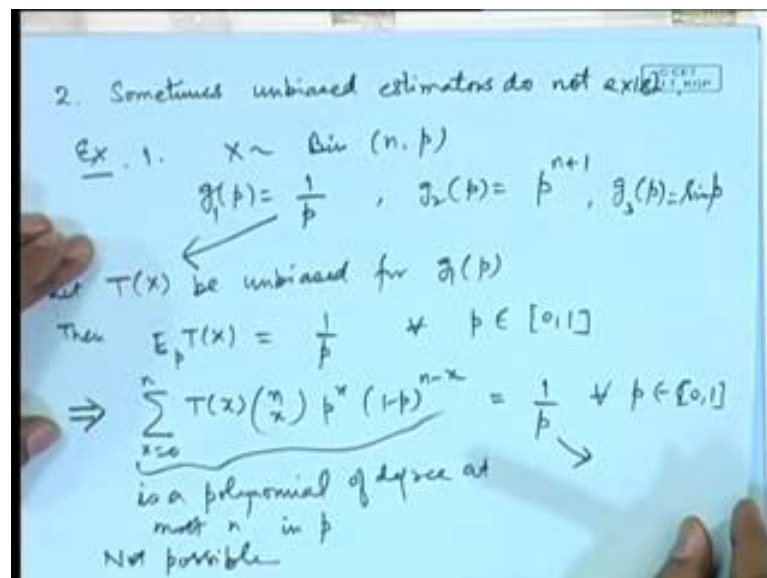 2. Sometimes unbiased estimators do not exist.
Ex. 1. X ~ Bin (n, p)
g₁(p) = 1/p , g₂(p) = p^(n+1), g₃(p) = sin p
T(X) be unbiased for g₁(p)
Then E_p T(X) = 1/p ∀ p ∈ [0,1]
⇒ ∑_{x=0}^{n} T(x) (n x) p^x (1-p)^(n-x) = 1/p ∀ p ∈ [0,1]
is a polynomial of degree at
most n in p
Not possible